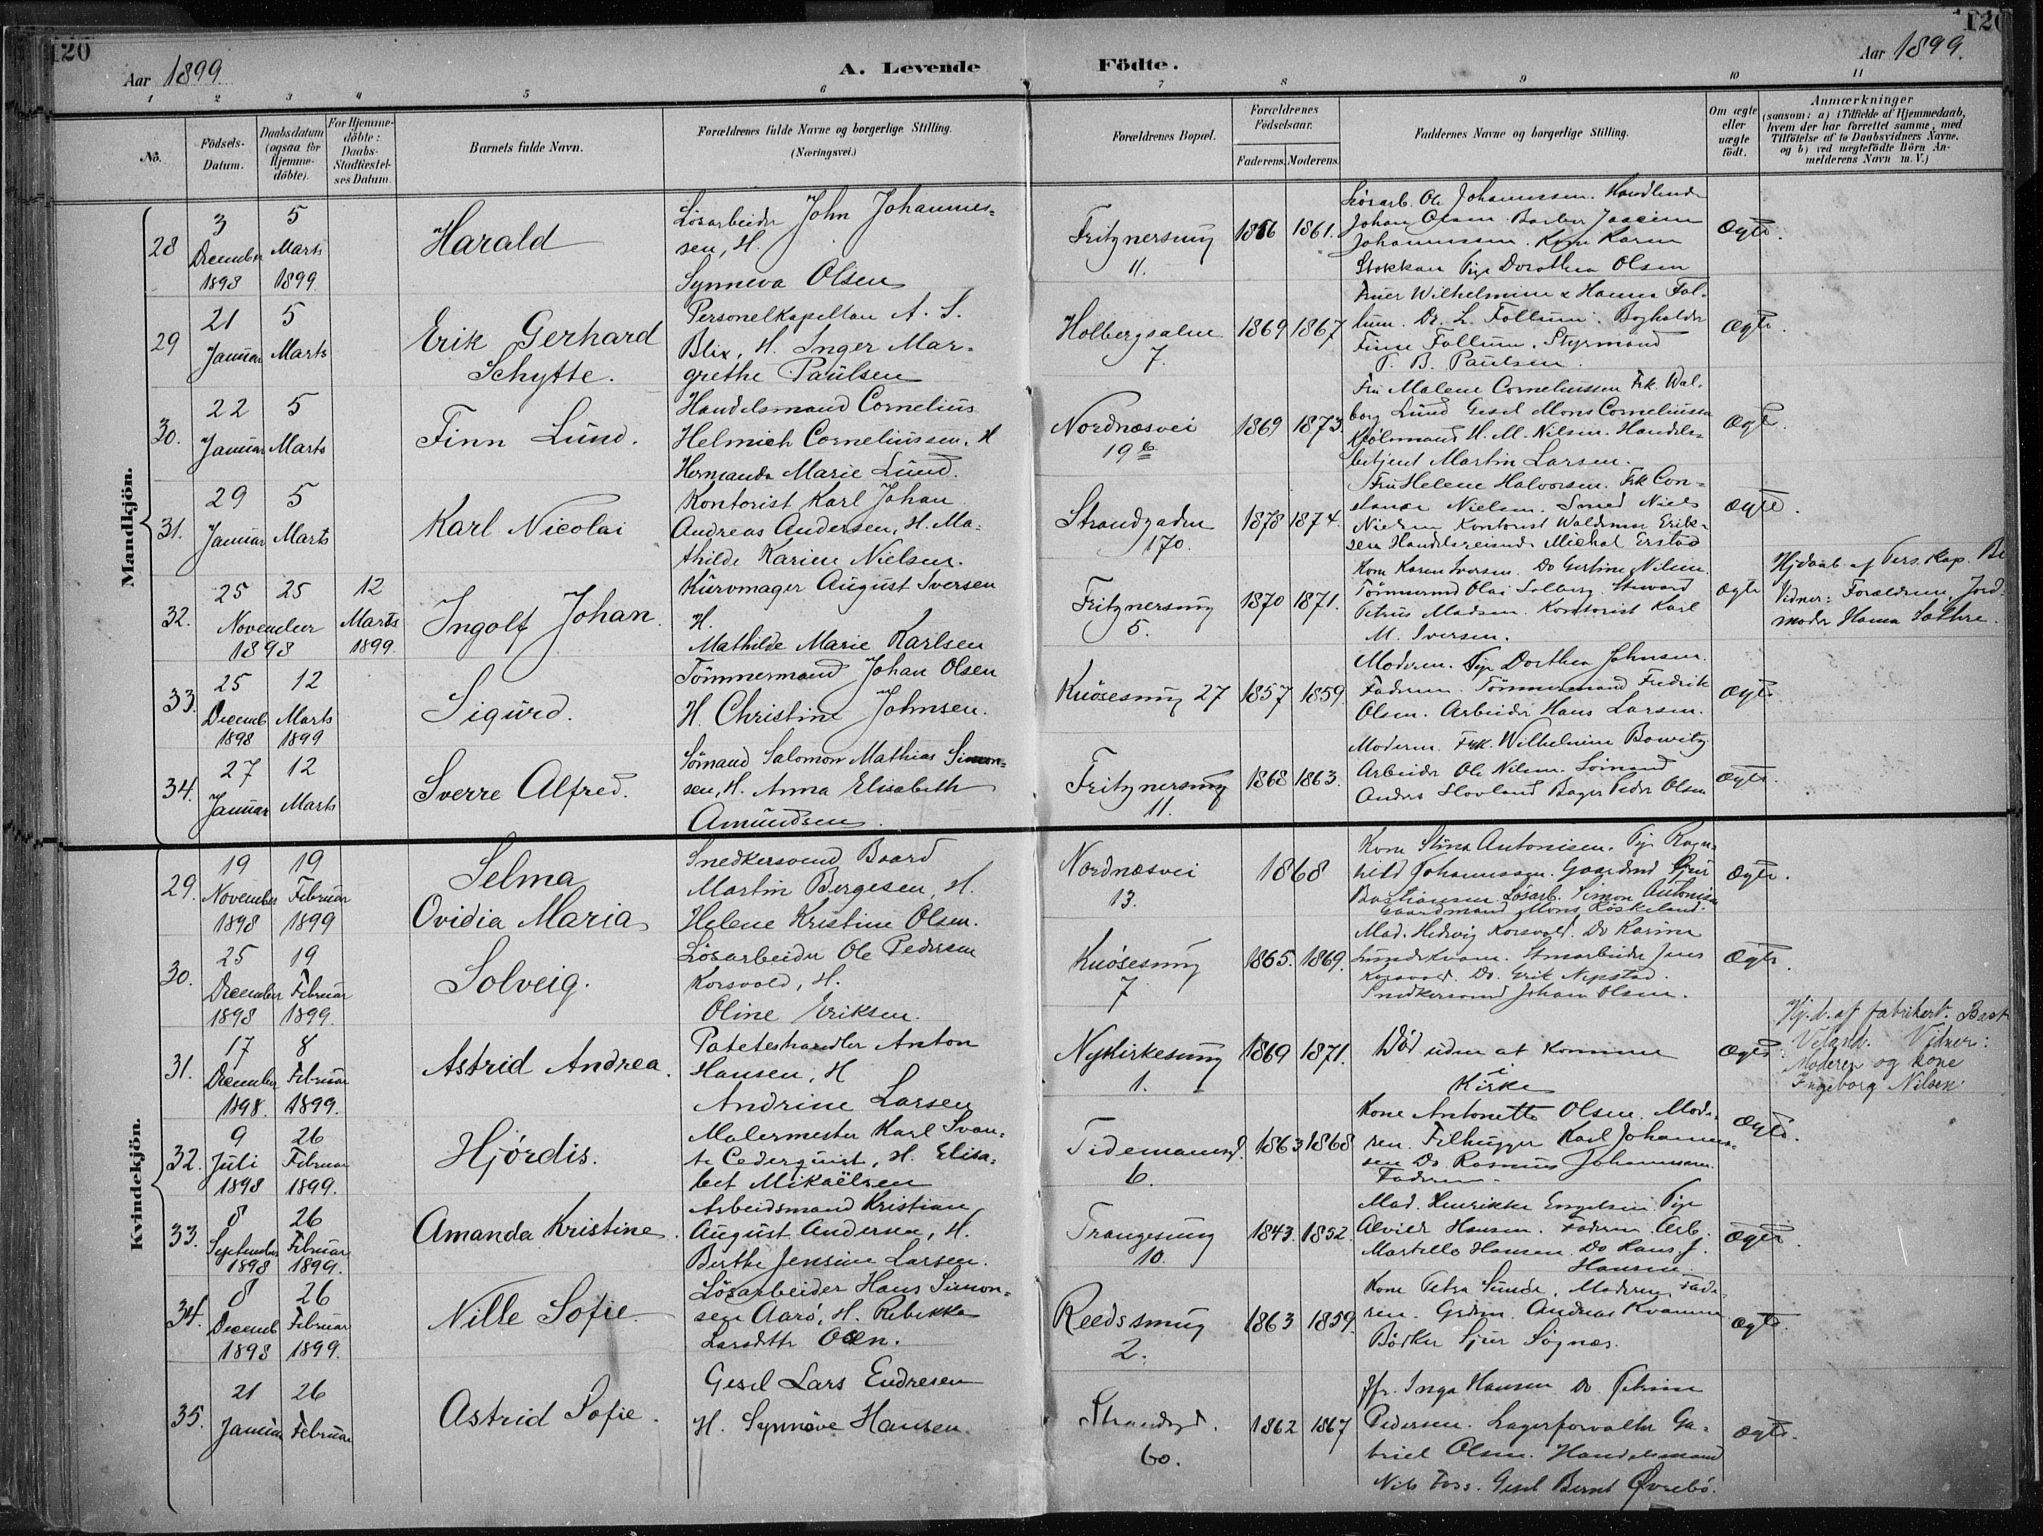 120
Aar 1899.
A. Levende
Födte.
Aar 1899.
120
1 2 3 4 5 6 7 8 9 10 11
No.
Födsels-
Datum.
Daabsdatum
(ogsaa for
Hjemme-
döbte).
For Hjemme-
döbte:
Daabs-
Stadfæstel-
ses Datum.
Barnets fulde Navn.
Forældrenes fulde Navne og borgerlige Stilling.
(Næringsvei.)
Forældrenes Bopæl.
Forældrenes
Födselsaar.
Faderens. Moderens.
Faddernes Navne og borgerlige Stilling.
Om ægte
eller
uægte
födt.
Anmærkninger
(saasom: a) i Tilfælde af Hjemmedaab,
hvem der har forrettet samme, med
Tilföielse af to Daabsvidners Navne,
og b) ved uægtefödte Börn An-
melderens Navn m. V.)
Mandkjön.
28
3 December 1898
5 Marts 1899
Harald
Løsarbeider John Johannes-
sen, H.
Synneva Olsen
Fritznersmug
11.
1866 1861.
Løsarb. Ole Johannessen. Handlende
Johan Olsen. Barber Joacim
Johannessen. Kone Karen
Stokkan Pige Dorothea Olsen
Ægte.
29
21 Januar
5 Marts
Erik Gerhard
Schytte.
Personelkapellan A. S.
Blix, H. Inger Mar-
grethe Paulsen
Holbergsalm
7.
1869 1867
Fruer Wilhelmine & Hanna Fol-
lum. Dr. L. Follum. Bogholder
Finne Follum. Styrmand
P. B. Paulsen.
Ægte.
30.
22 Januar
5 Marts
Finn Lund.
Handelsmand Cornelius
Helmich Corneliussen, H
Hermanda Marie Lund.
Nordnæsvei
19 b
1869 1873.
Fru Malene Corneliussen Frk. Wal-
borg Lund Gesel Mons Corneliussen
H. M. Nilsen. Handels-
betjent Martin Larsen.
Ægte.
31.
29 Januar
5 Marts
Karl Nicolai
Kontorist Karl Johan
Andreas Andersen, H. Ma-
thilde Karine Nielsen.
Strandgaden
170.
1878 1874.
Fru Helene Halvorsen. Frk Con-
stance Nielsen. Smed Niels
Nielsen Kontorist Waldemar Erik-
sen Handelsreisende Michal Erstad
Ægte.
32.
25 November 1898
25
12 Marts 1899.
Ingolf Johan.
Kurvmager August Iversen
H.
Mathilde Marie Karlsen
Fritznersmug
5.
1870 1871.
Kone Karen Iversen. Do Gertine Nilsen.
Tømmermd Olai Solberg. Steward
Petrus Madsen. Kontorist Karl
M. Iversen.
Ægte
Hjdaab. af Pers. Kap.
Vidner: Forældrene, Jord-
moder Hanna Sæthre.
33.
25 Decemb 1898
12 Marts 1899
Sigurd.
Tømmermand Johan Olsen
H. Christine Johnsen.
Knøsesmug 27
1857 1859.
Moderen. Pige Dorthea Johnsen.
Faderen. Tømmermand Fredrik
Olsen. Arbeider Hans Larsen.
Ægte
34.
27 Januar
12 Marts
Sverre Alfred.
Sømand Salomon Mathias Simon-
sen, H. Anna Elisabeth
Amundsen.
Fritznersmug
11.
1868 1863.
Moderen. Frk. Wilhelmine Bowitz
Arbeider Ole Nilsen. Sømand
Anders Hovland Bager Peder Olsen
Ægte.
Kvindekjön.
29.
19 November 1898
19 Februar 1899
Selma
Ovidia Maria
Snedkersvend Baard
Martin Bergesen, H.
Helene Kristine Olsen.
Nordnæsvei
13.
1868
Kone Stina Antonisen. Pige Ragn-
hild Johannessen. Gaardmd
Bastiansen. Løsarb. Simon Antonisen
Gaardmand Mons Røskeland.
Ægte.
30.
25 December 1898
19 Februar 1899.
Solveig.
Løsarbeider Ole Pedersen
Korsvold, H.
Oline Eriksen.
Knøsesmug
7
1865. 1869.
Mad. Hedvig Korsvold. Do Karine
Lundekvam. Stenarbeider Jens
Korsvold. Do. Erik Nipstad.
Snedkersvend Johan Olsen.
Ægte.
31.
17 December 1898.
8 Februar 1899.
Astrid Andrea.
Poteteshandler Anton
Hansen, H
Andrine Larsen
Nykirkesmug
1.
1869 1871.
Død uden at komme
i
Kirke
Ægte.
Hj.d. af fabrikert. Bast
Veland. Vidner:
Moderen og kone
Ingeborg Nilsen
32.
9 Juli 1898
26 Februar 1899.
Hjørdis.
Malermester Karl Svan-
te Cederquist, H. Elisa-
bet Mikaëlsen
Tidemansgd.
6.
1863 1868
Kone Antonette Olsen. Mode-
ren. Filhugger Karl Johannes-
sen Do. Rasmus Johannessen.
Faderen.
Ægte.
33.
8 September 1898
26 Februar 1899.
Amanda Kristine.
Arbeidsmand Kristian
August Andersen, H.
Berthe Jensine Larsen.
Trangesmug
10.
1843. 1852.
Mad. Henrikke Engelsen Pige
Alvild Hansen. Faderen Arb.
Martello Hansen. Do Hans J.
Hansen.
Ægte.
34.
8 Decemb 1898
26 Februar 1899.
Nille Sofie.
Løsarbeider Hans Simon-
sen Aarø, H. Rebikka
Larsdtr Oen.
Reedssmug
2.
1863 1859.
Kone Petra Sunde, Moderen, Fade-
ren. Grdm. Andreas Kvamme
Bødker Sjur Søgnæs.
Ægte.
35.
21 Januar
26 Februar
Astrid Sofie.
Gesel Lars Endresen
H. Synnøve Hansen.
Strandgd.
60.
1862 1867
Jfr. Inga Hansen Do.
Pedersen. Lagerforvalter Ga-
briel Olsen. Handelsmand
Nils Foss. Gesel Bernt Øvrebø.
Ægte.